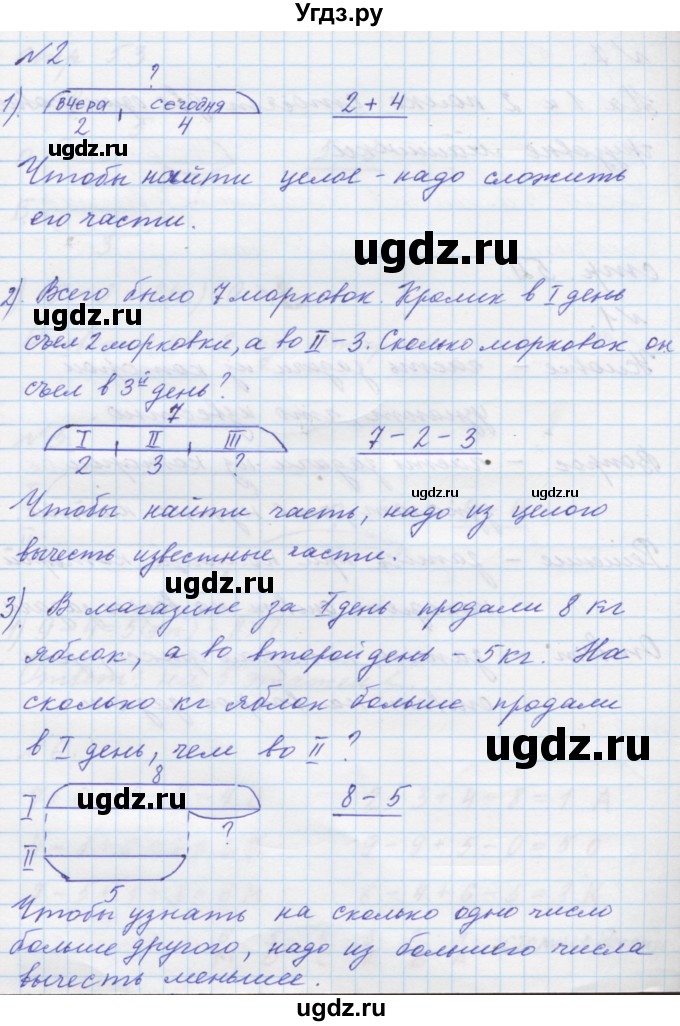 Угдз.ру
№2.
?
1). вчера сегодня 2 + 4
2 4
ugdz.ru
Чтобы найти целое - надо сложить
его части.
ugdz.ru
2). Всего было 7 морковок. Кролик в I день
ugdz.ru
съел 2 морковки, а во II - 3. Сколько морковок он
съел в 3й день?
7
I II III 7 - 2 - 3
2 3 ?
ugdz.ru ugdz.ru
Чтобы найти часть, надо из целого
вычесть известные части.
ugdz.ru
3). В магазине за I день продали 8 кг
яблок, а во второй день - 5 кг. На
сколько кг яблок больше продали
ugdz.ru
в I день, чем во II ?
8
I ugdz.ru 8 - 5
?
II
5
Чтобы узнать на сколько одно число
больше другого, надо из большего числа
вычесть меньшее.
ugdz.ru